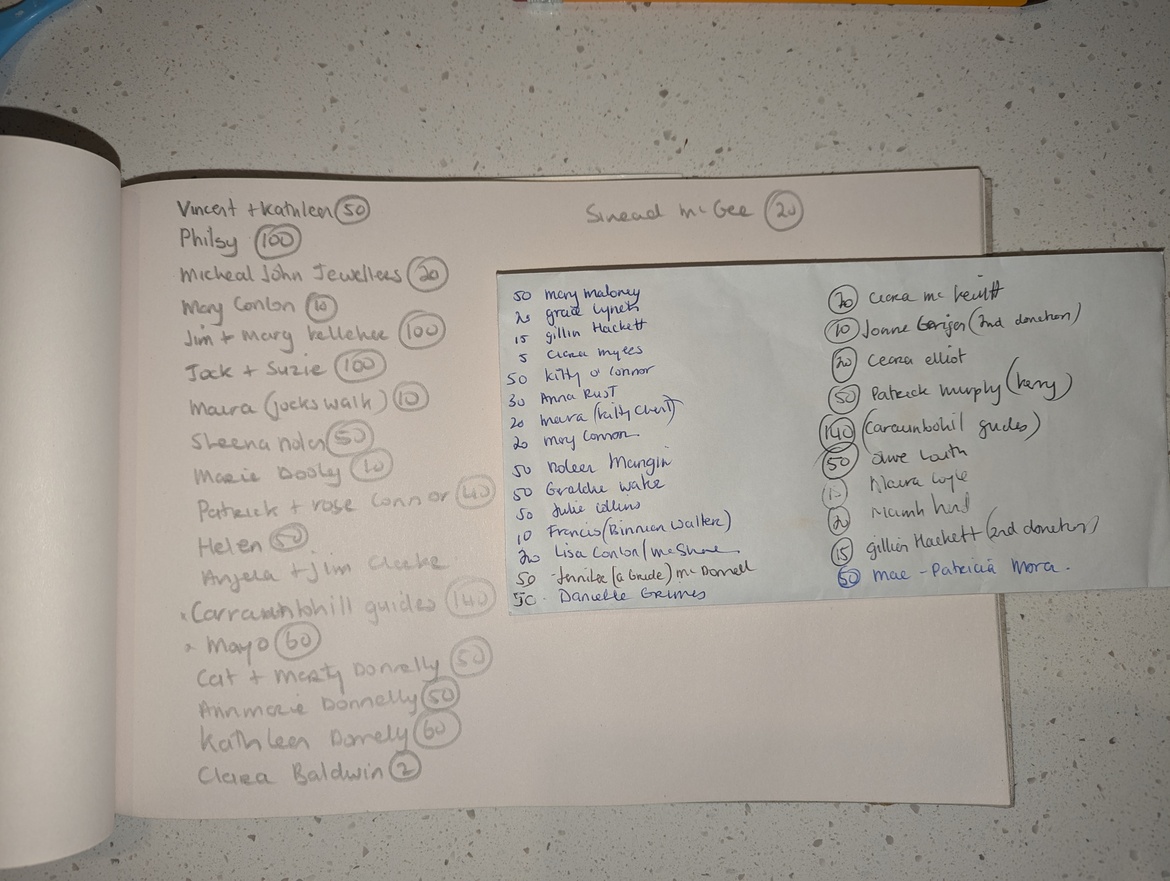 Vincent + Kathleen 50
Philsy 100
Micheal John Jewellers 20
Mary Conlon 10
Jim + Mary Kelleher 100
Jack + Suzie 100
Maura (jocks walk) 10
Sheena nolan 50
Marie Dooly 10
Patrick + rose Connor 40
Helen 50
Angela + Jim Clarke
x Carrauntohill guides 140
x Mayo 60
Cat + Marty Donnelly 50
Annmarie Donnelly 50
Kathleen Donnelly 60
Ciara Baldwin 2
Sinead McGee 20
50 mary maloney
20 grace Lynch
15 gillin Hackett
5 Ciara myles
50 Kitty o' Connor
30 Anna Rust
20 maura (Kitty Chest)
20 may Connon
50 Noleen Mangin
50 Geraldine Wake
50 Julie Collins
10 Francis (Binnian Walker)
20 Lisa Conlon / mcShane
50 Jennifer (a Guide) mc Donnell
50 - Danielle Grimes
20 Ciara mc Kevitt
10 Joanne (2nd donation)
20 Ceara elliot
50 Patrick murphy (kerry)
140 (Caraunbohil guides)
50 Louth
Maura Coyle
20 Niamh
15 gillien Hackett (2nd donation)
50 mae - Patricia Mora.